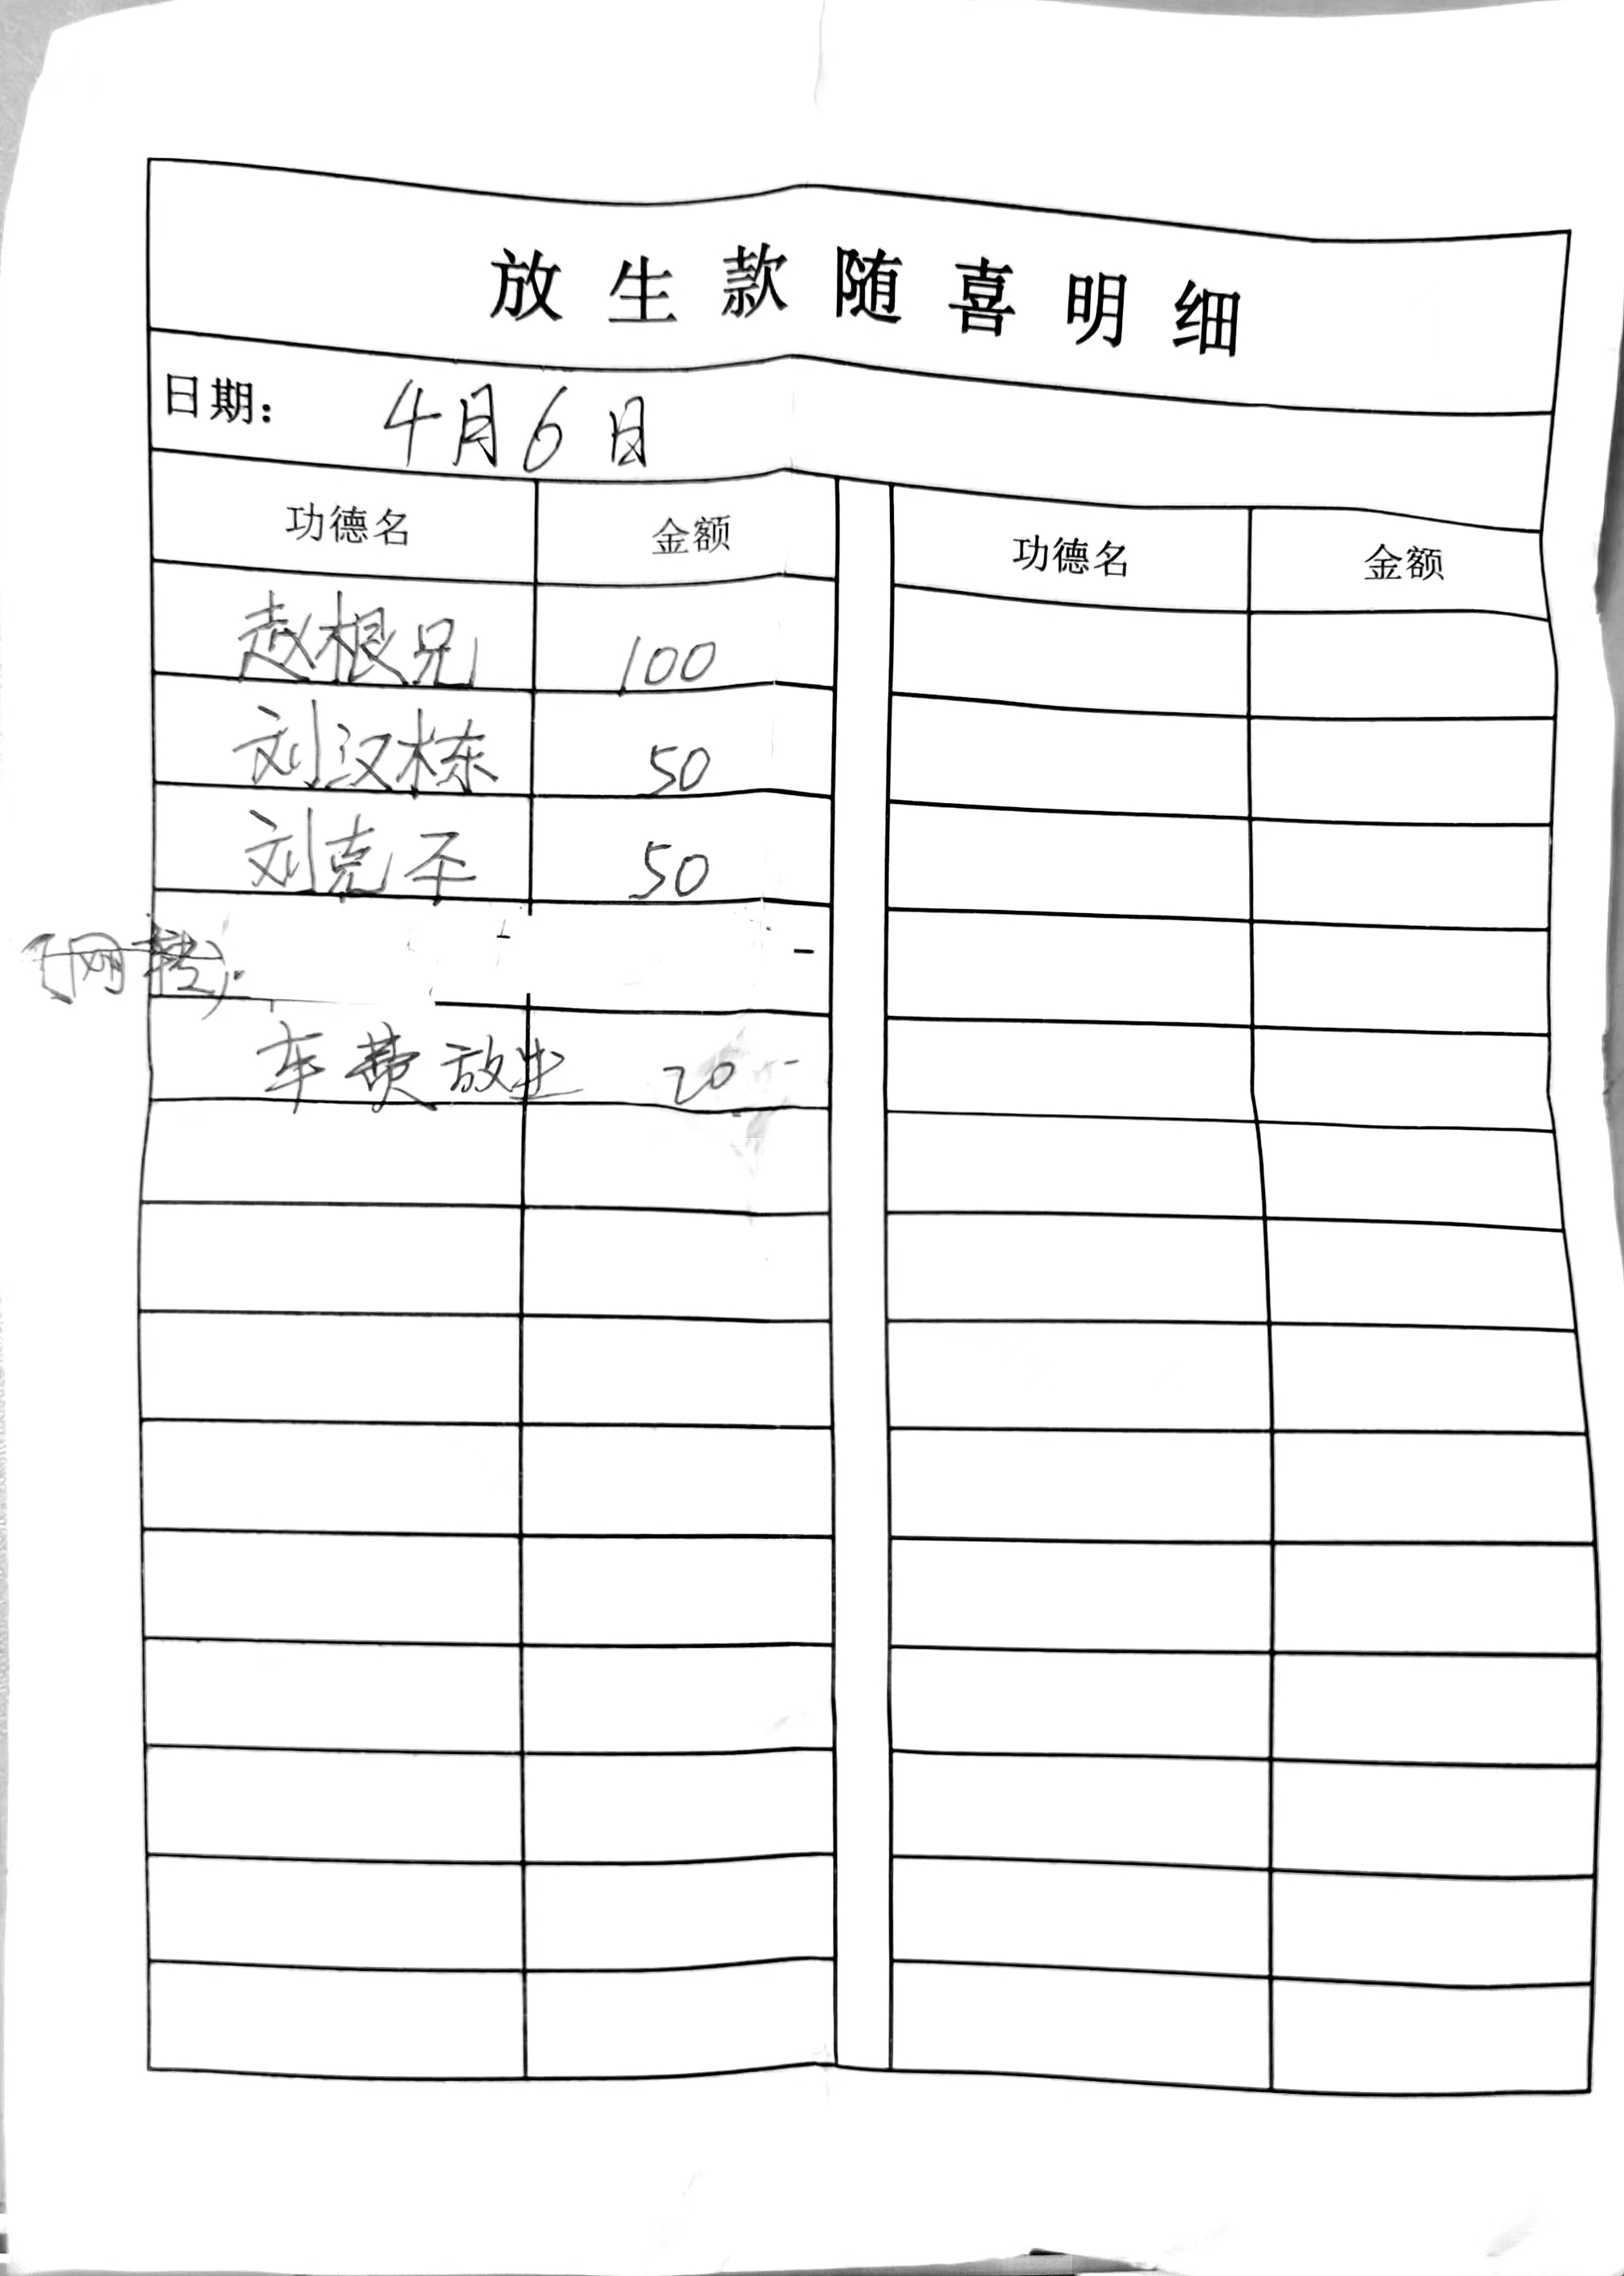 放生款随喜明细
日期： 4月6日
功德名 金额 功德名 金额
赵根兄 100
刘汉栋 50
刘克不 50
(网转).
车费放生 20